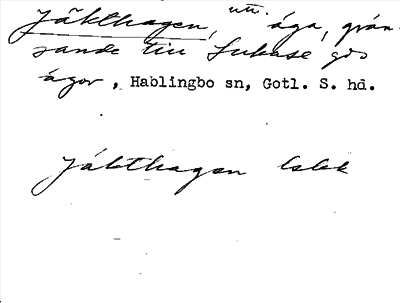 Jäkthagen, utt. äga, grän-
sande till Lukase gds
ägor, Hablingbo sn, Gotl. S. hd.
Jákthagen